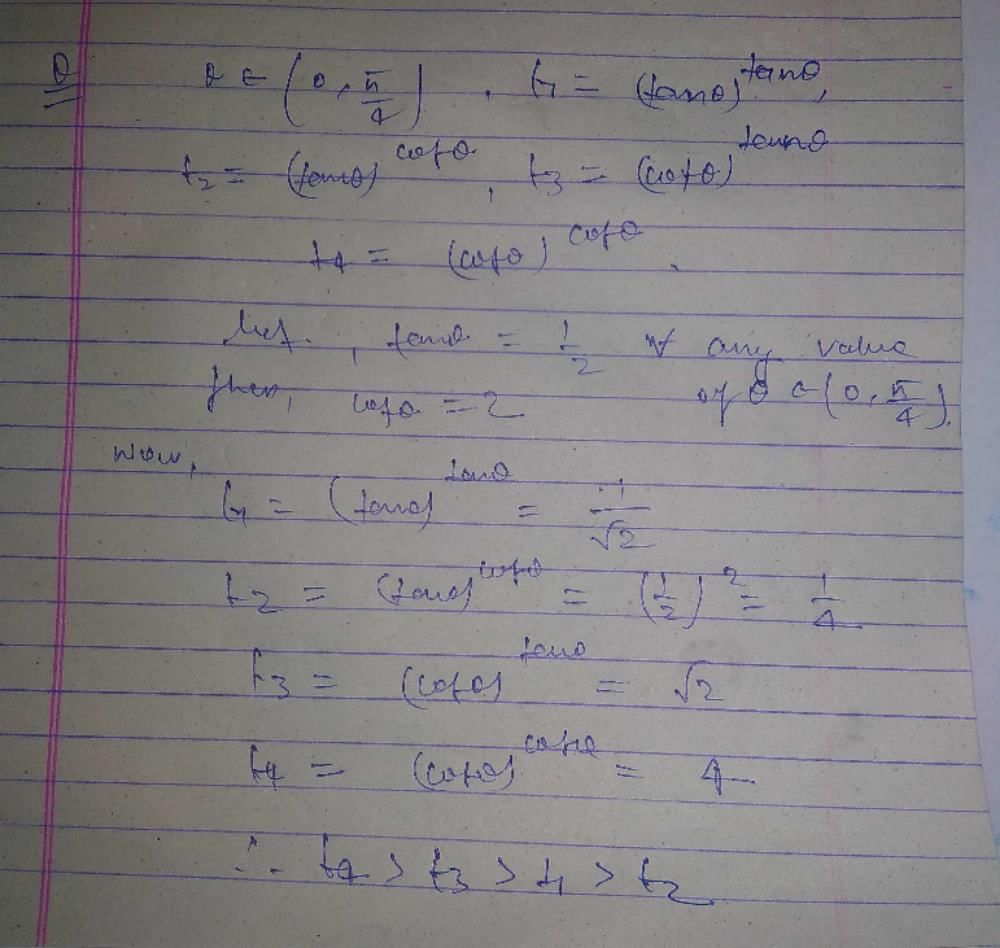 Q θ ∈ (0, π/4), t1 = (tanθ)^tanθ,
t2 = (tanθ)^cotθ, t3 = (cotθ)^tanθ
t4 = (cotθ)^cotθ.
Let, tanθ = 1/2 ∀ any value
then, cotθ = 2 of θ ∈ (0, π/4).
Now,
t1 = (tanθ)^tanθ = 1/√2
t2 = (tanθ)^cotθ = (1/2)^2 = 1/4
t3 = (cotθ)^tanθ = √2
t4 = (cotθ)^cotθ = 4
∴ t4 > t3 > t1 > t2